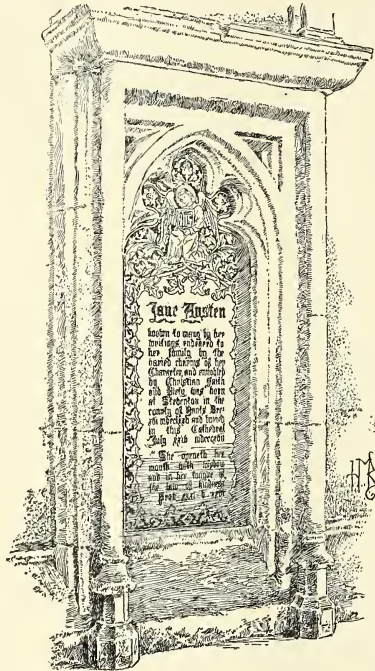 Jane Austen
known to many by her
writings endeared to
her family by the
varied charms of her
Character and ennobled
by Christian Faith
and Piety was born
at Steventon in the
county of Hants Dec
xvi mdcclxxv and buried
in this Cathedral
July xxiv mdcccxvii
"She openeth her
mouth with wisdom
and in her tongue is
the law of kindness
Prov xxxi v xxvi